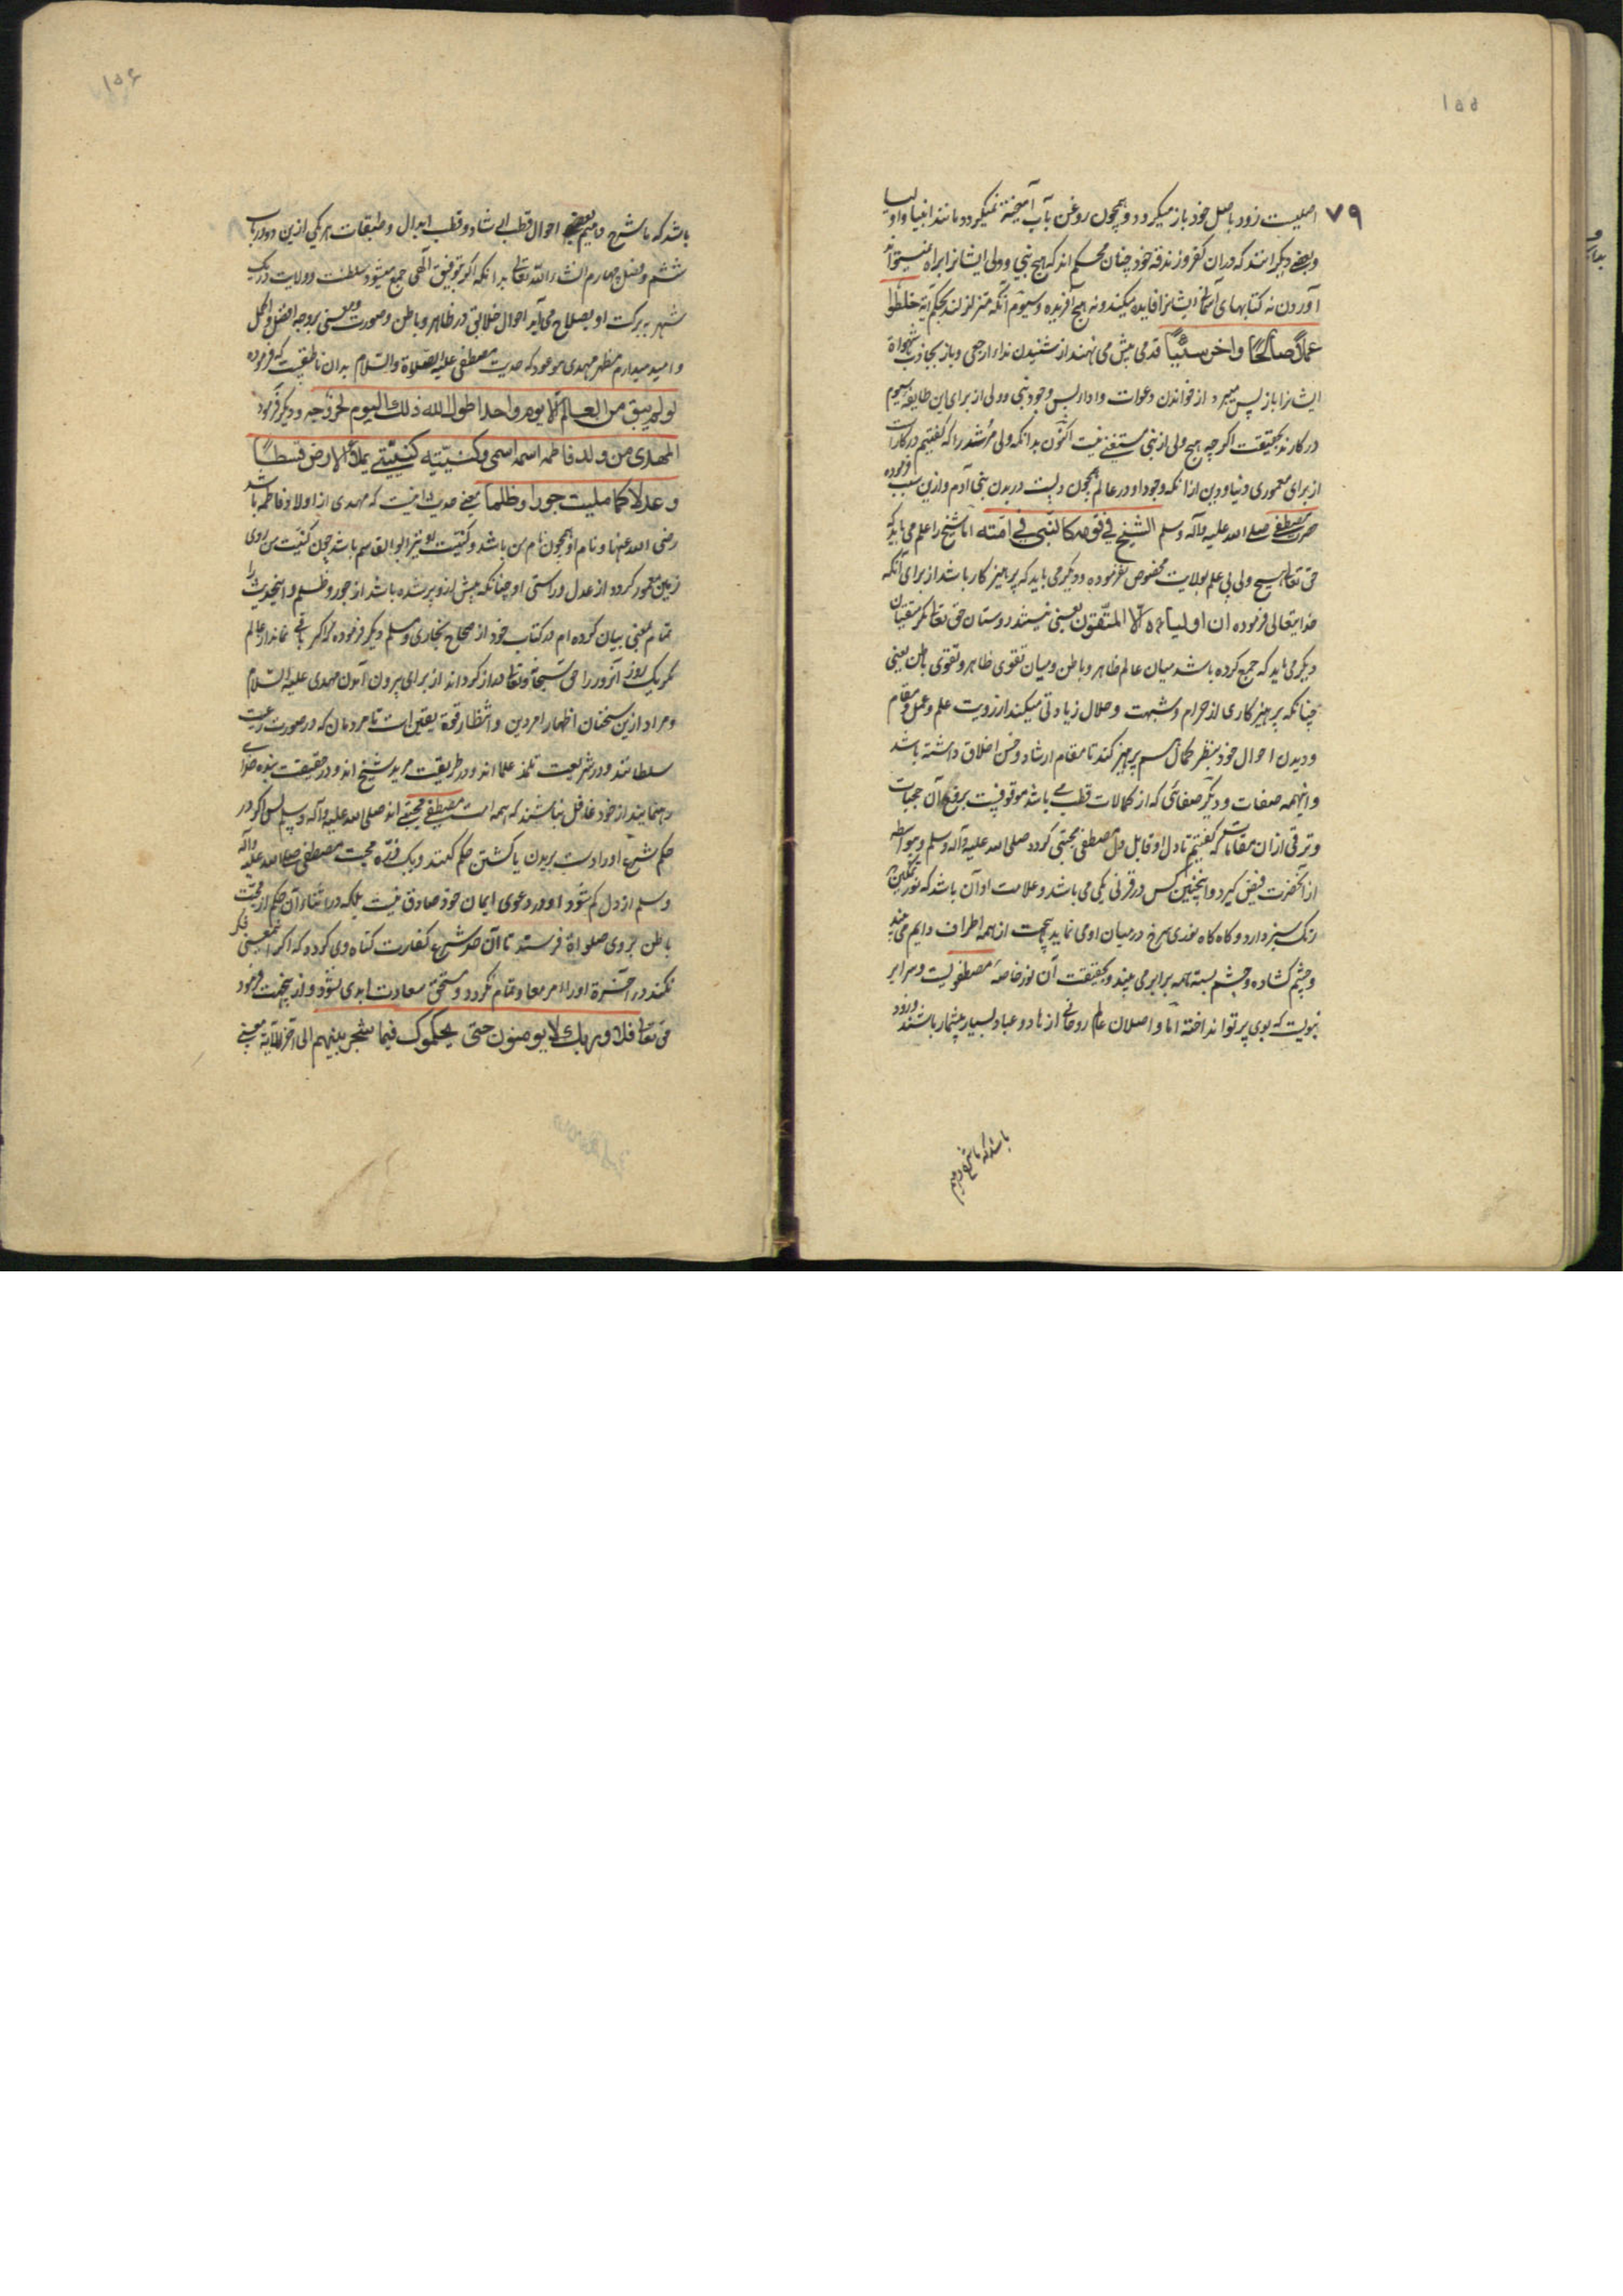 ۱۵۵
۷۹
اصلیت زود باصل خود باز میکردد و همچون روغن بآب آمیخته نمیکردد مانند انبیا و اولیا
و بعضی دیکر انند که در ان کفر و زندقه خود چنان محکم اند که هیچ نبی و ولی ایشانرا براه نمیتواند
آوردن نه کتابهای آسمانی ایشانرا فایده میکند و نه هیچ افریده و سیوم آنکه متزلزلند بحکم آیة خلطوا
عملاً صالحاً واخر سیّئاً قدمی پیش می نهند از شنیدن نداء ارجعی و باز بجاذب شهواة
ایشانرا باز پس میبرد از خواندن دعوات و ادار پس وجود نبی و ولی از برای این طایفه سیوم
در کارند بحقیقت اکر چه هیچ ولی از نبی مستغنی نیست اکنون بدانکه ولی مرشد را که کفتیم در کارات
از برای معموری دنیا و دین از انکه وجود او در عالم همچون دلست در بدن بنی آدم و ازین سبب فرموده
حضرت مصطفی صلی الله علیه وآله وسلم الشیخ فی قومه کالنبی فی امّته امّا شیخ را علم می باید که
حق تعالی هیچ ولی بی علم بولایت مخصوص نفرموده و دیکر می باید که پرهیز کار باشد از برای آنکه
خدایتعالی فرموده ان اولیاءه الّا المتّقون یعنی نیستند دوستان حق تعالی مکر متقیان
دیکر می باید که جمع کرده باشد میان عالم ظاهر و باطن و میان تقوی ظاهر و تقوی باطن یعنی
چنانکه پرهیز کاری از حرام و شبهت و حلال زیادتی میکند از رویت علم و عمل و مقام
و دیدن احوال خود بنظر کمال هم پرهیز کند تا مقام ارشاد و حسن اخلاق داشته باشد
و اینهمه صفات و دیکر صفاتی که از کمالات قطب می باشد موقوفیست برفع آن حجبات
و ترقی ازان مقامات که کفتیم تا دل او قابل دل مصطفی مجتبی کردد صلی الله علیه وآله وسلم و بواسطه
از آنحضرت فیض کیرد و اینچنین کس در قرنی یکی می باشد و علامت او آن باشد که نور تمکین
رنک سبز دارد و کاه کاه نوری سرخ در میان او می نماید بیجهت از همه اطراف دایم می بیند
و چشم کشاده و چشم بسته همه برابر می بیند و بحقیقت آن نور خاصه مصطفویست و سرایر
نبویست که بوی پرتو انداخته امّا واصلان عالم روحانی از زهاد و عباد بسیار بیشمار باشند و زود
باشد که ما شرح دهیم
۱۵۶
باشد که ما شرح دهیم بعضی احوال قطب ارشاد و قطب ابدال و طبقات هر یکی ازین دو در باب
ششم و فصل چهارم انشاء الله تعالی بدانکه اکر بتوفیق آلهی جمع میشود سلطنت و ولایت در یک
شهر ببرکت او بصلاح می آید احوال خلایق در ظاهر و باطن و صورت و معنی بروجه افضل و اکمل
و امید میدارم مظهر مهدی موعود که حدیث مصطفی علیه الصلاة والسلام بدان ناطقیست که فرموده
لو لم یبق من العالم الّا یوم واحد اطول الله ذلک الیوم لخروجه و دیکر فرمود
المهدی من ولد فاطمه اسمه اسمی و کنیّته کنیّتی یملاء الارض قسطاً
و عدلاً کما ملیت جورا و ظلما یعنی حدیث اینست که مهدی از اولاد فاطمه باشد
رضی الله عنها و نام او همچون نام من باشد و کنیّت او نیز ابو القاسم باشد چون کنیّت من روی
زمین معمور کردد از عدل و راستی او چنانکه پیش ازو پر شده باشد از جور و ظلم و اینحدیث را
تمام معنی بیان کرده ام در کتاب خود از صحاح بخاری و مسلم دیکر فرموده که اکر باقی نماند از عالم
مکر یک روز آنروز را حق سبحانه و تعالی دراز کرداند از برای بیرون آمدن مهدی علیه السلام
و مراد ازین سخنان اظهار امر دین و انتظار قوة یقین است تا مردمان که در صورت رعیت
سلطانند و در شریعت تلمذ علما اند و در طریقت مرید شیخ اند و در حقیقت بنده خدای
رهنمایند از خود غافل نباشند که همه امت مصطفی مجتبی اند صلی الله علیه وآله وسلم پس اکر در
حکم شرع او را دست بریدن یا کشتن حکم کنند و یک ذرّه محبت مصطفی صلی الله علیه وآله
وسلم از دل کم شود او در دعوی ایمان خود صادق نیست بلکه در اثناء آن حکم از محبّت
باطن بروی صلواة فرستد تا آن حد شرع کفارت کناه وی کردد که اکر اینمعنی فکر
نکند در آخرة او را امر معاد تمام نکردد و مستحق سعادت ابدی نشود و ازینجهت فرمود
حق تعالی فلا وربک لا یومنون حتی یحکموک فیما شجر بینهم الی آخر الآیة یعنی